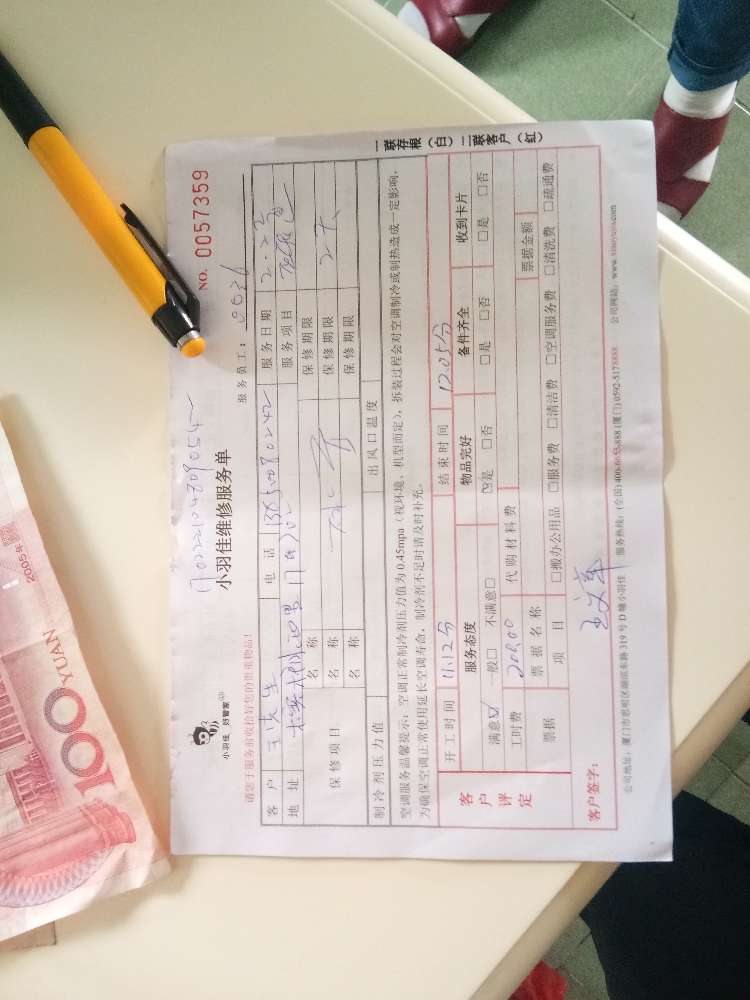 17022210480905四
小羽佳 好管家
小羽佳维修服务单
NO. 0057359
请您于服务前收拾好您的贵重物品!
服务员工: 0036
客户 王先生 电话 服务日期
地址 服务项目
保修项目 名称 保修期限
名称 保修期限 2天
名称 保修期限
制冷剂压力值 出风口温度
空调服务温馨提示:空调正常制冷剂压力值为 0.45mpa(视环境、机型而定),拆装过程会对空调制冷或制热造成一定影响,
为确保空调正常使用延长空调寿命,制冷剂不足时请及时补充。
客户评定 开工时间 11:12分 结束时间 12:05分
服务态度 物品完好 备件齐全 收到卡片
满意☑ 一般□ 不满意□ ☑是 □否 □是 □否 □是 □否
工时费 200.00 代购材料费
票据 票据名称 票据金额
项目 □搬办公用品 □服务费 □清洁费 □空调服务费 □清洗费 □疏通费
客户签字:
公司地址:厦门市思明区湖滨东路 319 号 D 幢小羽佳 服务热线:(全国)400-6655-888 (厦门)0592-5178888 公司网站:www.xiaoyujia.com
一联存根(白)二联客户(红)
100 YUAN
2005年